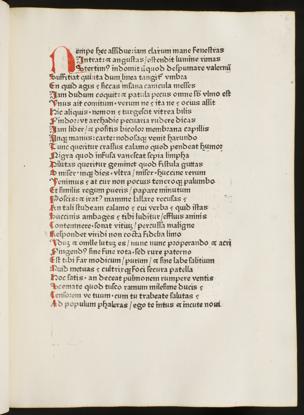 Nompe hec assidue: iam clarum mane fenestras
Intrat: et angustas / ostendit lumine rimas
Stertimꝰ indomitū quod despumare valernū
Sufficiat quinta dum linea tangitᷣ vmbra
En quid agis / siccas insana canicula messes
Iam dudum coquit: et patula pecus omne sb vlmo est
Vnus ait comitum. verum ne / ita ne / ocius assit
Hic aliquis. nemon / turgescit vitrea bilis
Findor: vt archadie pecuaria rudere dicas
Iam liber / et positis bicolor membrana capillis
Inq; manus: carte: nodosaq; venit harundo
Tunc queritur crassus calamo quod pendeat humor
Nigra quod infusa vanescat sepia limpha
Dilutas queritur geminet quod fistula guttas
O miser. inq; dies. vltra / miser. huccine rerum
Venimus / at cur non pocius teneroq; palumbo
Et similis regum pueris / papare minutum
Poscis: et irata mamme lallare recusas
An tali studeam calamo / cui verba / quid istas
Succinis ambages / tibi luditur / effluis amens
Contemnere. sonat vitiū / percussa maligne
Respondet viridi non cocta fidelia limo
Vdūz et molle lutuz es / nunc nunc properandus et acri
Fingendꝰ sine fine rota. sed rure paterno
Est tibi far modicum / purum / et sine labe salinum
Quid metuas / cultrixqz foci secura patella
Hoc satis. an deceat pulmonem rumpere ventis
Stemate quod tusco ramum milesime ducis
Censorem ve tuum. cum tu trabeate salutas
Ad populum phaleras / ego te intus et incute noui